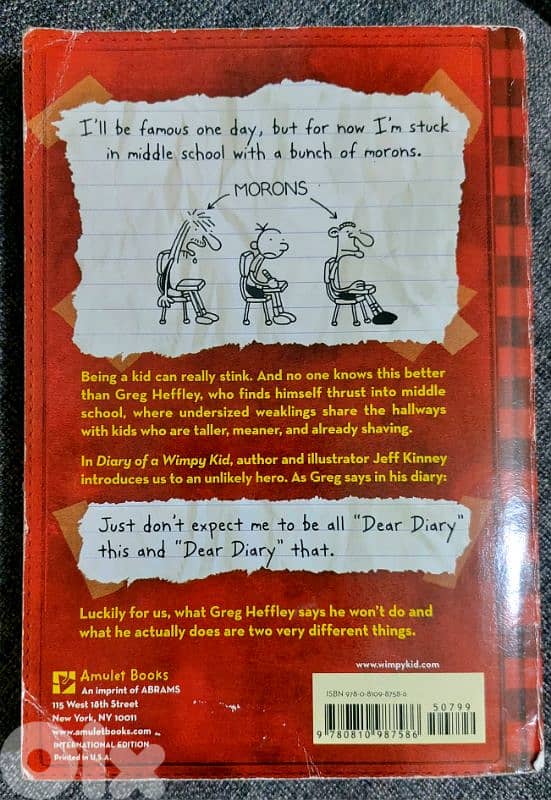 I'll be famous one day, but for now I'm stuck
in middle school with a bunch of morons.
MORONS
Being a kid can really stink. And no one knows this better
than Greg Heffley, who finds himself thrust into middle
school, where undersized weaklings share the hallways
with kids who are taller, meaner, and already shaving.
In Diary of a Wimpy Kid, author and illustrator Jeff Kinney
introduces us to an unlikely hero. As Greg says in his diary:
Just don't expect me to be all "Dear Diary"
this and "Dear Diary" that.
Luckily for us, what Greg Heffley says he won't do and
what he actually does are two very different things.
Amulet Books
An imprint of ABRAMS
115 West 18th Street
New York, NY 10011
www.amuletbooks.com
INTERNATIONAL EDITION
Printed in U.S.A.
www.wimpykid.com
ISBN 978-0-8109-8758-6
50799
9 780810 987586
olx